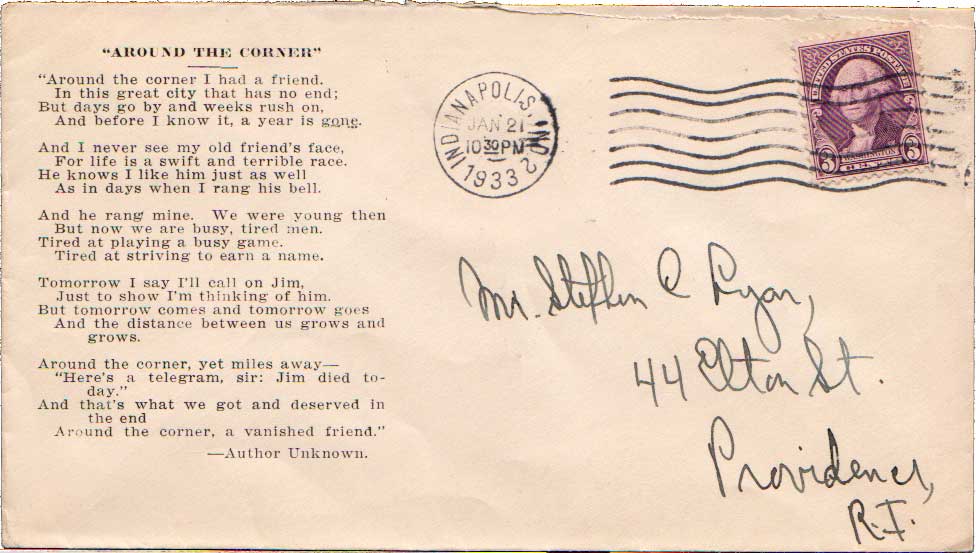 "AROUND THE CORNER"
"Around the corner I had a friend.
In this great city that has no end;
But days go by and weeks rush on,
And before I know it, a year is gone.
And I never see my old friend's face,
For life is a swift and terrible race.
He knows I like him just as well
As in days when I rang his bell.
And he rang mine. We were young then
But now we are busy, tired men.
Tired at playing a busy game.
Tired at striving to earn a name.
Tomorrow I say I'll call on Jim,
Just to show I'm thinking of him.
But tomorrow comes and tomorrow goes
And the distance between us grows and
grows.
Around the corner, yet miles away—
"Here's a telegram, sir: Jim died to-
day."
And that's what we got and deserved in
the end
Around the corner, a vanished friend."
—Author Unknown.
INDIANAPOLIS, IND. 2
JAN 21
10 30 PM
1933
UNITED STATES POSTAGE
3 WASHINGTON 3
Mr. Stephen C Ryan,
44 Elton St.
Providence,
R.I.